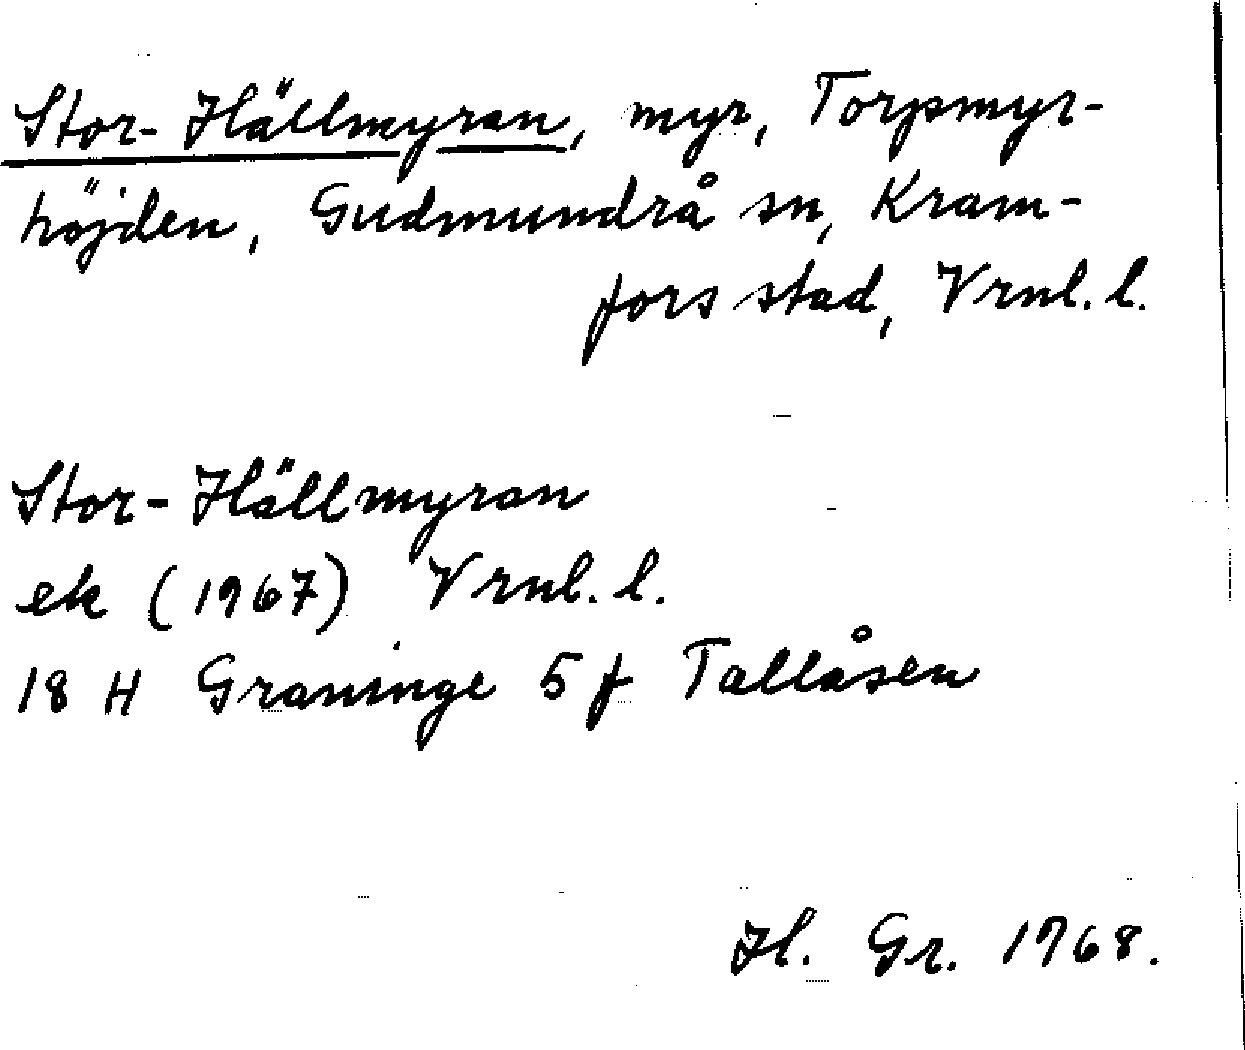 Stor-Hällmyran, myr, Torpsmyr-
höjden, Gudmundrå sn, Kram-
fors stad, Vrnl. l.
Stor-Hällmyran
ek (1967) Vrnl. l.
18 H Graninge 5 f Tallåsen
H. Gr. 1968.